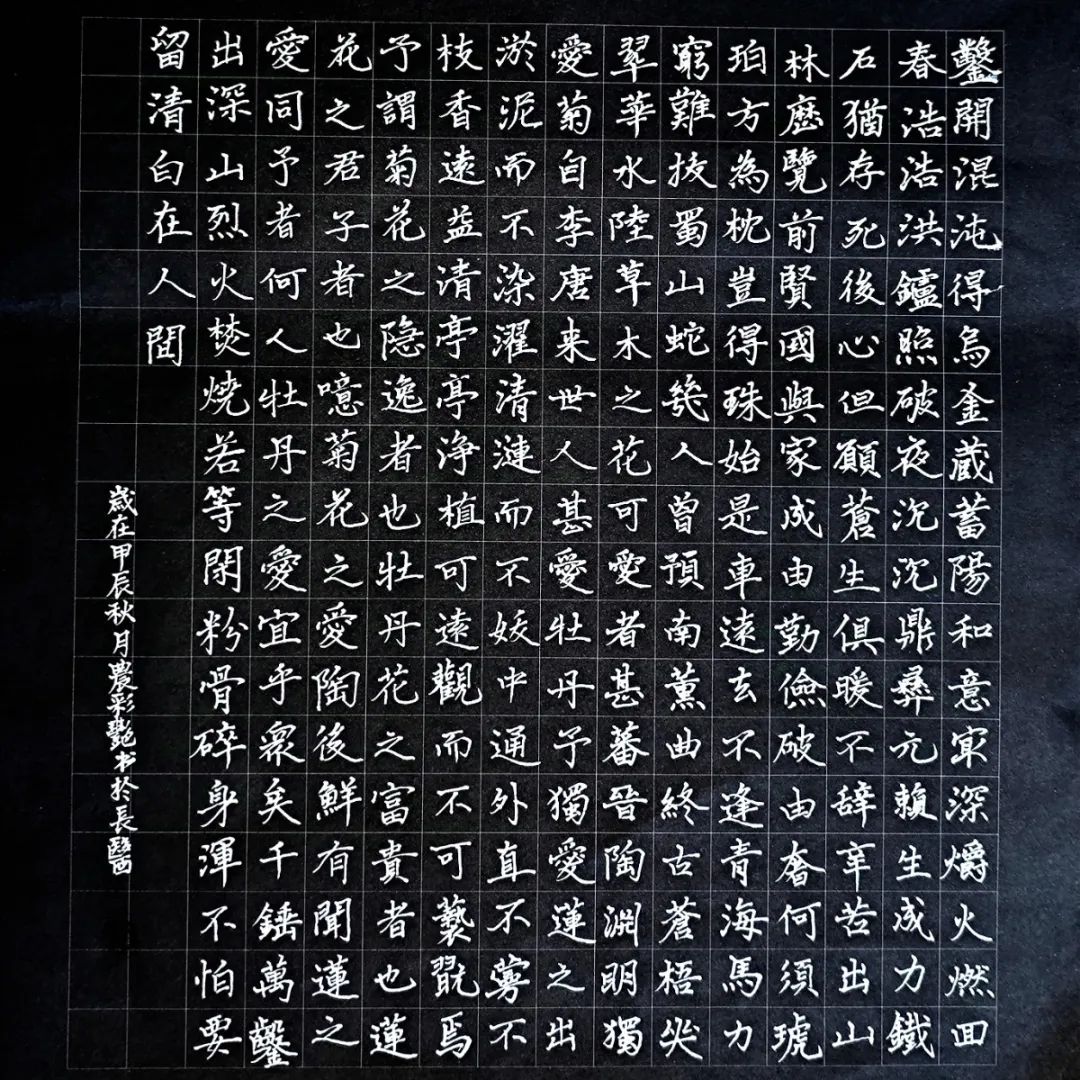 鑿開混沌得烏金藏蓄陽和意冣深爝火燃回
春浩浩洪鑪照破夜沉沉鼎彝元賴生成力鐵
石猶存死後心但願蒼生俱暖不辞辛苦出山
林歷覽前賢國與家成由勤儉破由奢何須琥
珀方為枕豈得珠始是車遠去不逢青海馬力
窮難拔蜀山蛇幾人曾預南薰曲終古蒼梧哭
翠華水陸草木之花可愛者甚蕃晉陶淵明獨
愛菊自李唐来世人甚愛牡丹予獨愛蓮之出
淤泥而不染濯清漣而不妖中通外直不蔓不
枝香遠益清亭亭浄植可遠觀而不可褻翫焉
予謂菊花之隐逸者也牡丹花之富貴者也蓮
花之君子者也噫菊花之愛陶後鮮有聞蓮之
愛同予者何人牡丹之愛宜乎衆矣千錘萬鑿
出深山烈火焚燒若等閑粉骨碎身渾不怕要
留清白在人間
歲在甲辰秋月農彩艷书於長醫